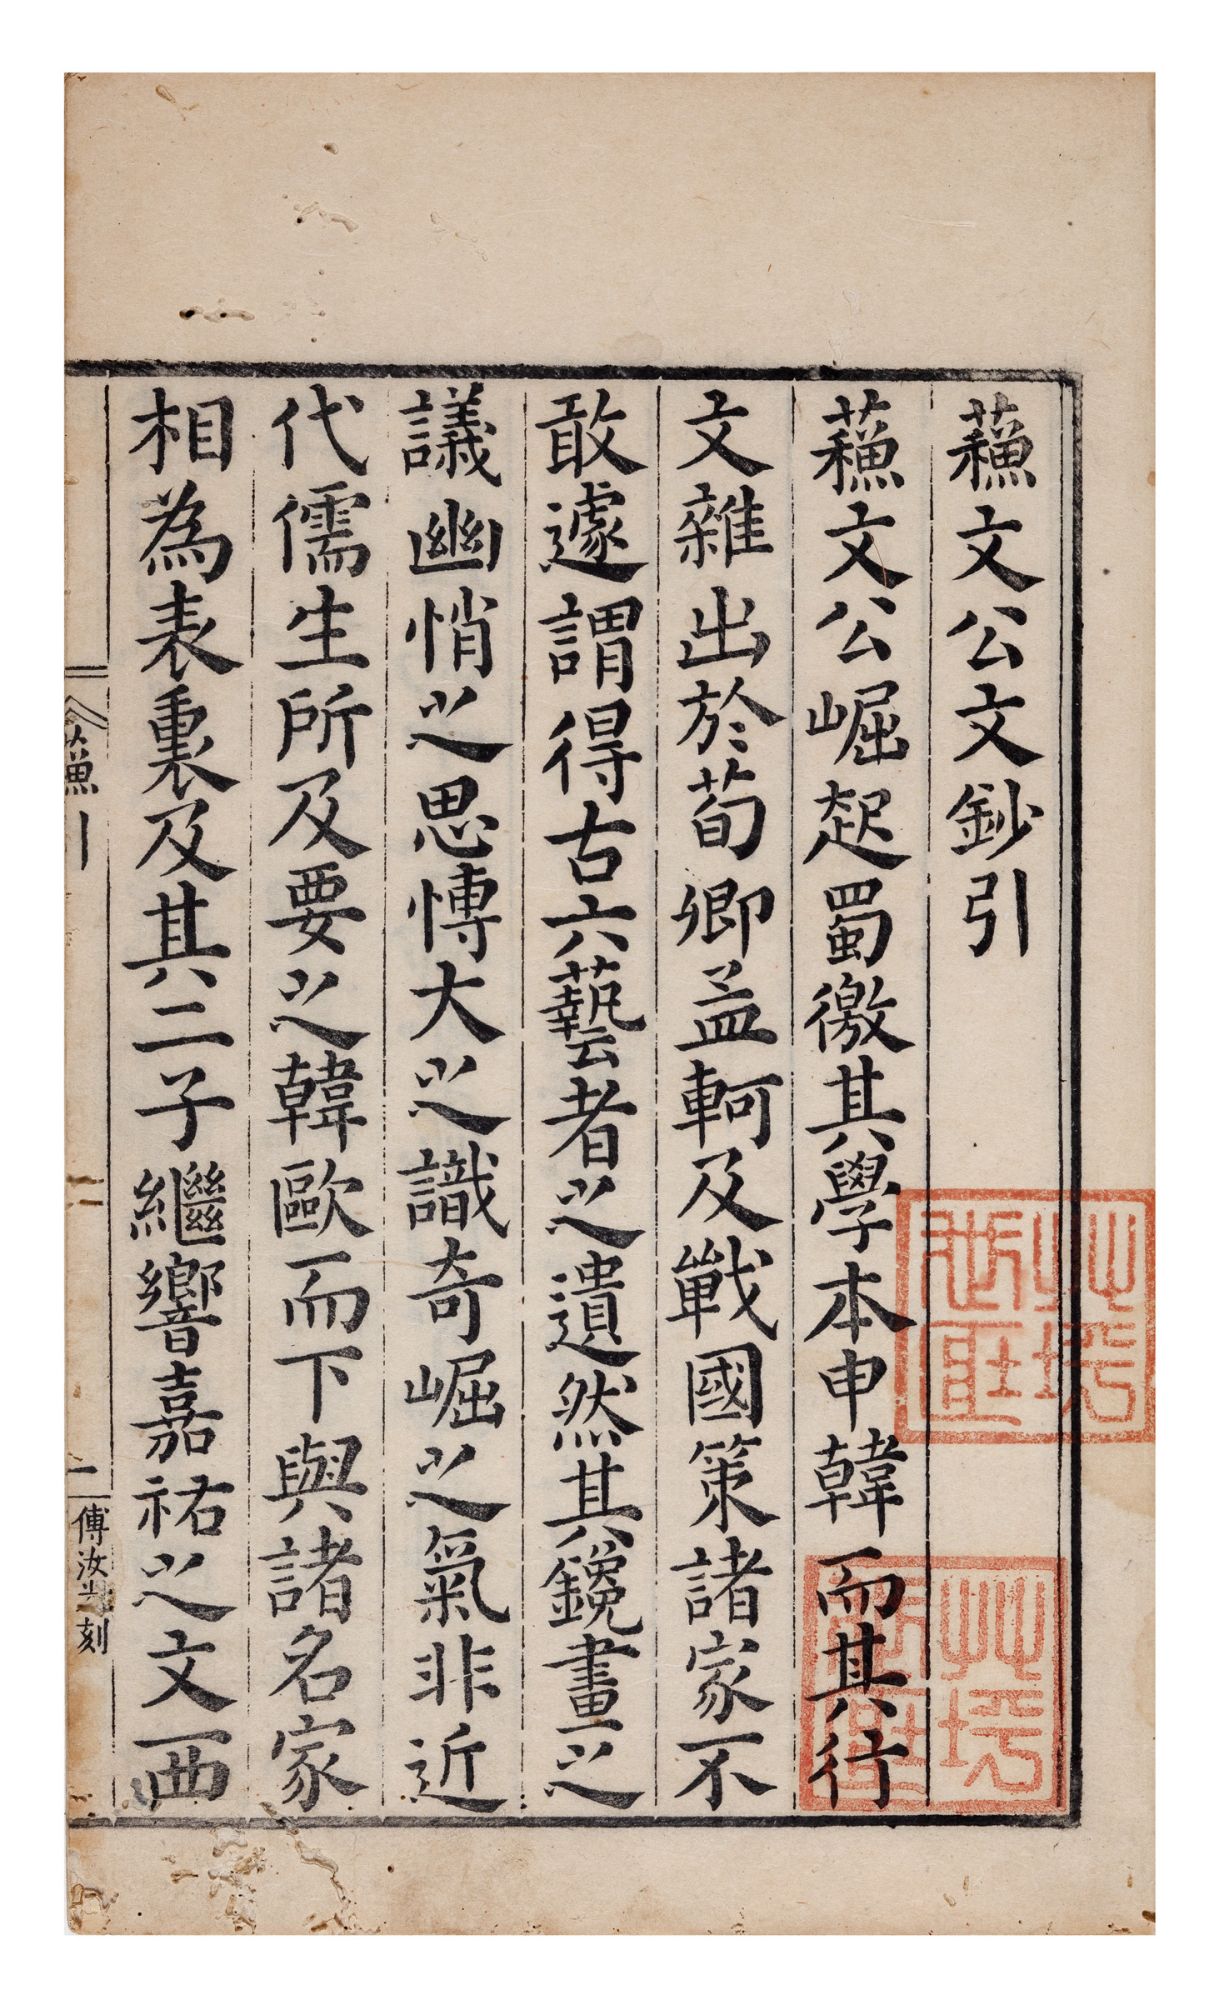 蘓文公文鈔引
蘓文公崛起蜀徼其學本申韓而其行
文雜出於荀卿孟軻及戰國策諸家不
敢遽謂得古六藝者之遺然其鑱畫之
議幽悄之思愽大之識奇崛之氣非近
代儒生所及要之韓歐而下與諸名家
相為表裏及其二子繼響嘉祐之文西
蘓引
一
傅汝光刻